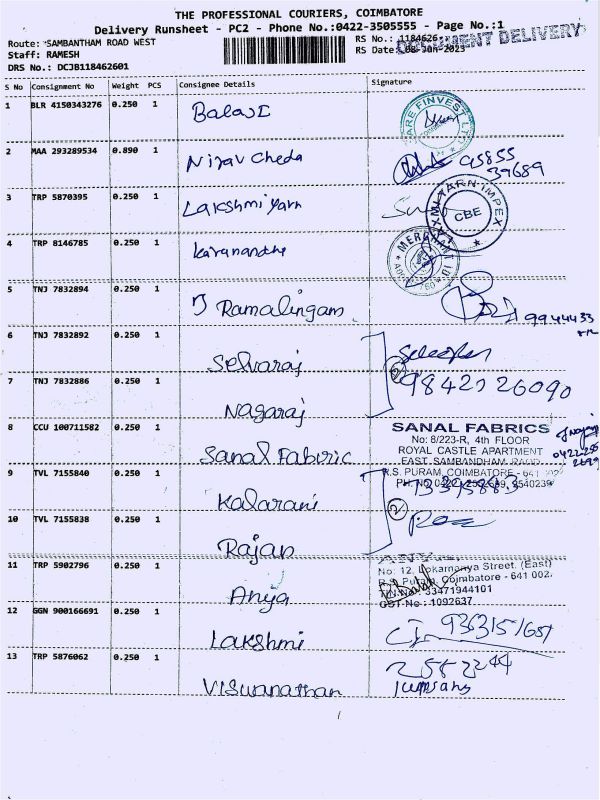 THE PROFESSIONAL COURIERS, COIMBATORE
Delivery Runsheet - PC2 - Phone No.:0422-3505555 - Page No.:1
Route: SAMBANTHAM ROAD WEST
RS No.: 1184626
DOCUMENT DELIVERY
Staff: RAMESH
RS Date: 08-Jan-2023
DRS No.: DCJB118462601
S No Consignment No Weight PCS Consignee Details Signature
1 BLR 4150343276 0.250 1 Balaji
2 MAA 293289534 0.890 1 Nirav Cheda
95855
39689
3 TRP 5870395 0.250 1 Lakshmi Yarn
LAXMI YARN IMPEX
CBE
4 TRP 8146785 0.250 1
5 TNJ 7832894 0.250 1 Ramalingam
9944433
6 TNJ 7832892 0.250 1 Selvaraj
7 TNJ 7832886 0.250 1 Nagaraj
9842126090
8 CCU 100711582 0.250 1 Sanal Fabric
SANAL FABRICS
No: 8/223-R, 4th FLOOR
ROYAL CASTLE APARTMENT
EAST SAMBANDHAM ROAD
R.S. PURAM, COIMBATORE - 641 002
9 TVL 7155840 0.250 1 Kalarani
10 TVL 7155838 0.250 1 Rajan
2
11 TRP 5902796 0.250 1 Aniya
No: 12, Lokamanya Street, (East)
R.S. Puram, Coimbatore - 641 002.
33471944101
CST No : 1092637
12 GGN 900166691 0.250 1 Lakshmi
13 TRP 5876062 0.250 1 Viswanathan
2582244